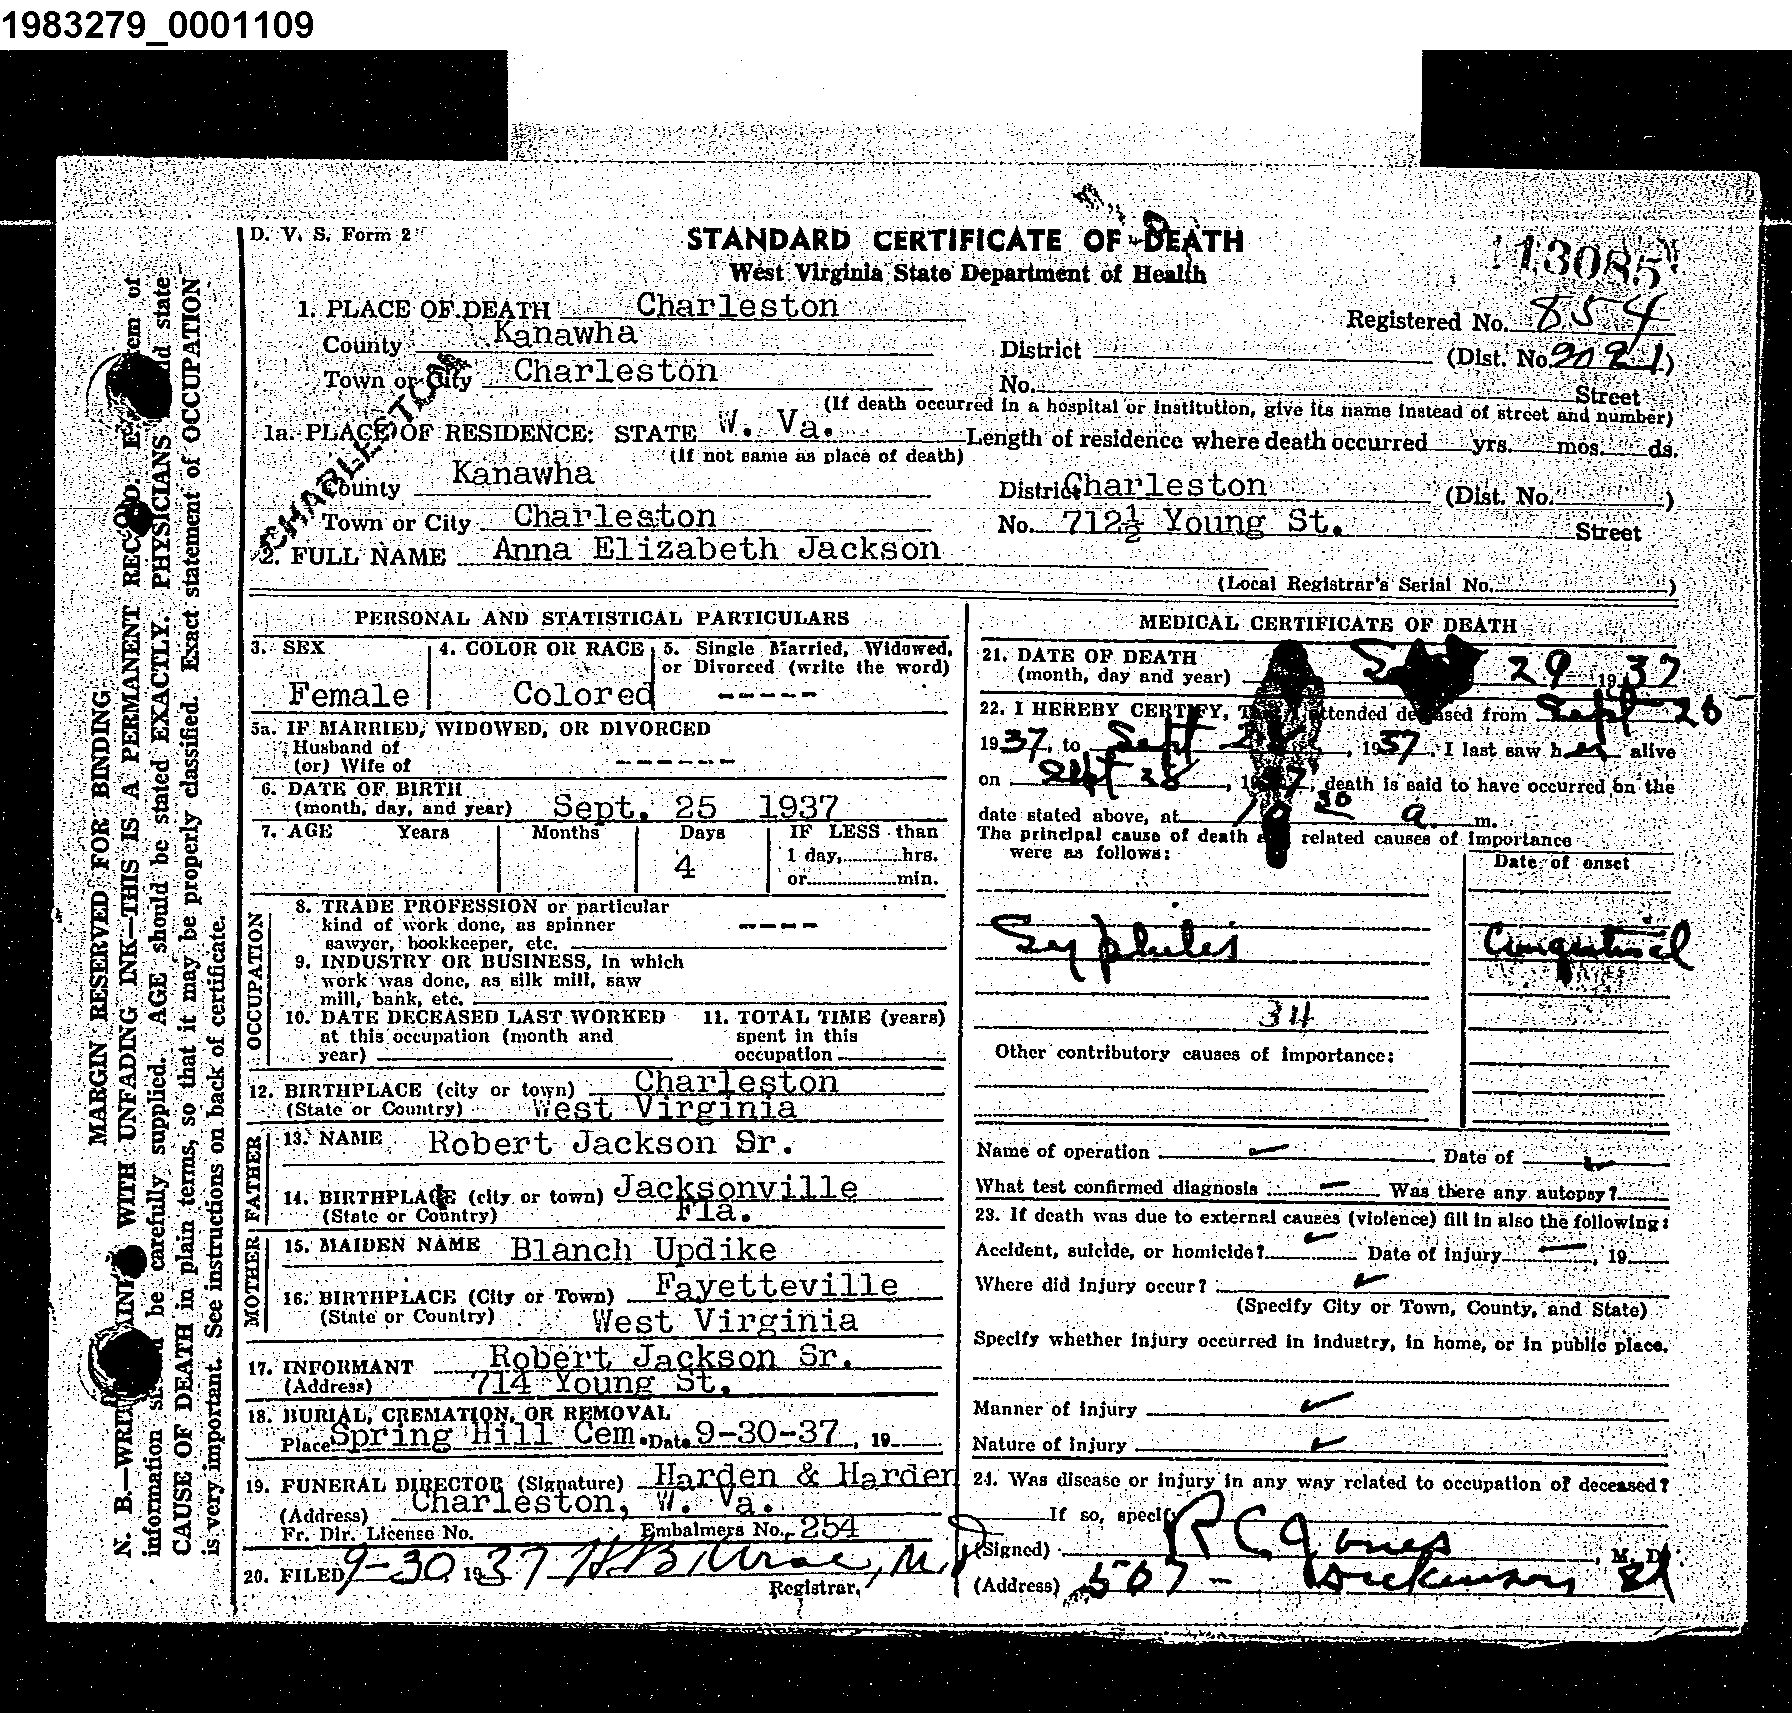 1983279_0001109
D. V. S. Form 2
STANDARD CERTIFICATE OF DEATH
West Virginia State Department of Health
13085
1. PLACE OF DEATH Charleston
Registered No. 854
County Kanawha
District (Dist. No. 2021)
Town or City Charleston
No. Street
(If death occurred in a hospital or institution, give its name instead of street and number)
1a. PLACE OF RESIDENCE: STATE W. Va. Length of residence where death occurred yrs. mos. ds.
(If not same as place of death)
CHARLESTON
County Kanawha
District Charleston (Dist. No. )
Town or City Charleston
No. 712½ Young St. Street
2. FULL NAME Anna Elizabeth Jackson
(Local Registrar's Serial No. )
PERSONAL AND STATISTICAL PARTICULARS
3. SEX
Female
4. COLOR OR RACE
Colored
5. Single Married, Widowed,
or Divorced (write the word)
-----
5a. IF MARRIED, WIDOWED, OR DIVORCED
Husband of
(or) Wife of ------
6. DATE OF BIRTH
(month, day, and year) Sept. 25 1937
7. AGE Years Months Days IF LESS than
1 day, hrs.
4
or min.
OCCUPATION
8. TRADE PROFESSION or particular
kind of work done, as spinner ----
sawyer, bookkeeper, etc.
9. INDUSTRY OR BUSINESS, in which
work was done, as silk mill, saw
mill, bank, etc.
10. DATE DECEASED LAST WORKED
at this occupation (month and
year)
11. TOTAL TIME (years)
spent in this
occupation
12. BIRTHPLACE (city or town) Charleston
(State or Country) West Virginia
FATHER
13. NAME Robert Jackson Sr.
14. BIRTHPLACE (city or town) Jacksonville
(State or Country) Fla.
MOTHER
15. MAIDEN NAME Blanch Updike
16. BIRTHPLACE (City or Town) Fayetteville
(State or Country) West Virginia
17. INFORMANT Robert Jackson Sr.
(Address) 714 Young St.
18. BURIAL, CREMATION, OR REMOVAL
Place Spring Hill Cem. Date 9-30-37, 19
19. FUNERAL DIRECTOR (Signature) Harden & Harden
(Address) Charleston, W. Va.
Fr. Dir. License No. Embalmers No. 254
20. FILED 9-30 1937 H.B. M.D.
Registrar.
MEDICAL CERTIFICATE OF DEATH
21. DATE OF DEATH
(month, day and year) 29 1937
22. I HEREBY CERTIFY, attended deceased from Sept 26
1937, to Sept , 1937, I last saw her alive
on Sept 28, 1937, death is said to have occurred on the
date stated above, at 10 30 a. m.
The principal cause of death related causes of importance
were as follows:
Date of onset
Syphilis
Congenital
34
Other contributory causes of importance:
Name of operation Date of
What test confirmed diagnosis Was there any autopsy?
23. If death was due to external causes (violence) fill in also the following:
Accident, suicide, or homicide? Date of injury , 19
Where did injury occur?
(Specify City or Town, County, and State)
Specify whether injury occurred in industry, in home, or in public place.
Manner of injury
Nature of injury
24. Was disease or injury in any way related to occupation of deceased?
If so, specify
(Signed) R C Jones, M. D.
(Address) 507 - Dickinson St
MARGIN RESERVED FOR BINDING
N. B.—WRITE WITH UNFADING INK—THIS IS A PERMANENT RECORD. of
information be carefully supplied. AGE should be stated EXACTLY. PHYSICIANS state
CAUSE OF DEATH in plain terms, so that it may be properly classified. Exact statement of OCCUPATION
is very important. See instructions on back of certificate.